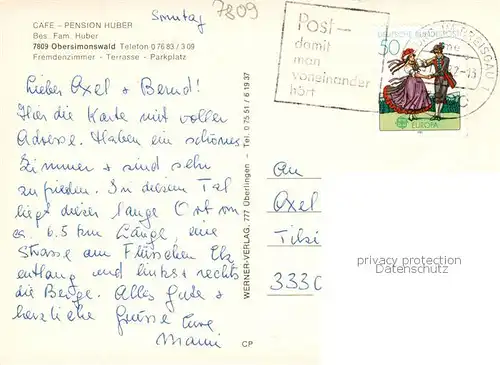 Sonntag
7809
CAFE – PENSION HUBER
Bes. Fam. Huber
7809 Obersimonswald Telefon 0 76 83 / 3 09
Fremdenzimmer - Terrasse - Parkplatz
Lieber Axel + Bernd!
Hier die Karte mit voller
Adresse. Haben ein schönes
Zimmer + sind sehr
zufrieden. In diesem Tal
liegt dieser lange Ort von
ca. 6.5 km Länge, eine
Strasse am Flüsschen Elz
entlang und links + rechts
die Berge. Alles Gute +
herzliche Grüsse Eure
Mami
CP
WERNER-VERLAG, 777 Überlingen - Tel. 0 75 51 / 6 19 37
Post-
damit
man
voneinander
hört
DEUTSCHE BUNDESPOST
50
EUROPA
An
Axel
Tibi
privacy protection
Datenschutz
3330